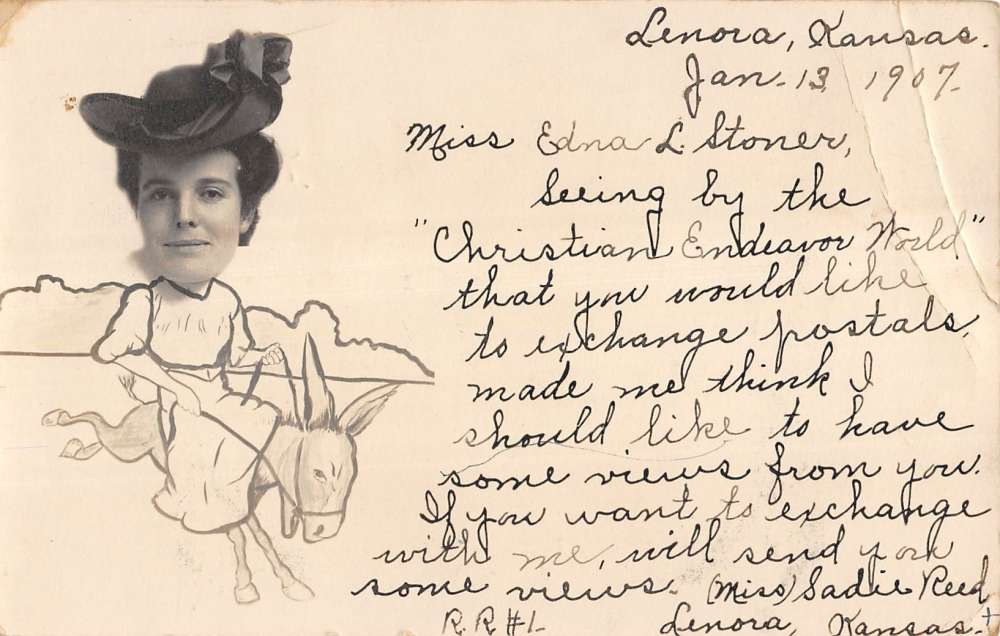 Lenora, Kansas.
Jan. 13, 1907.
Miss Edna L. Stoner,
Seeing by the
"Christian Endeavor World"
that you would like
to exchange postals,
made me think I
should like to have
some views from you.
If you want to exchange
with me, will send you
some views. (Miss) Sadie Reed
R.R #1. Lenora, Kansas.